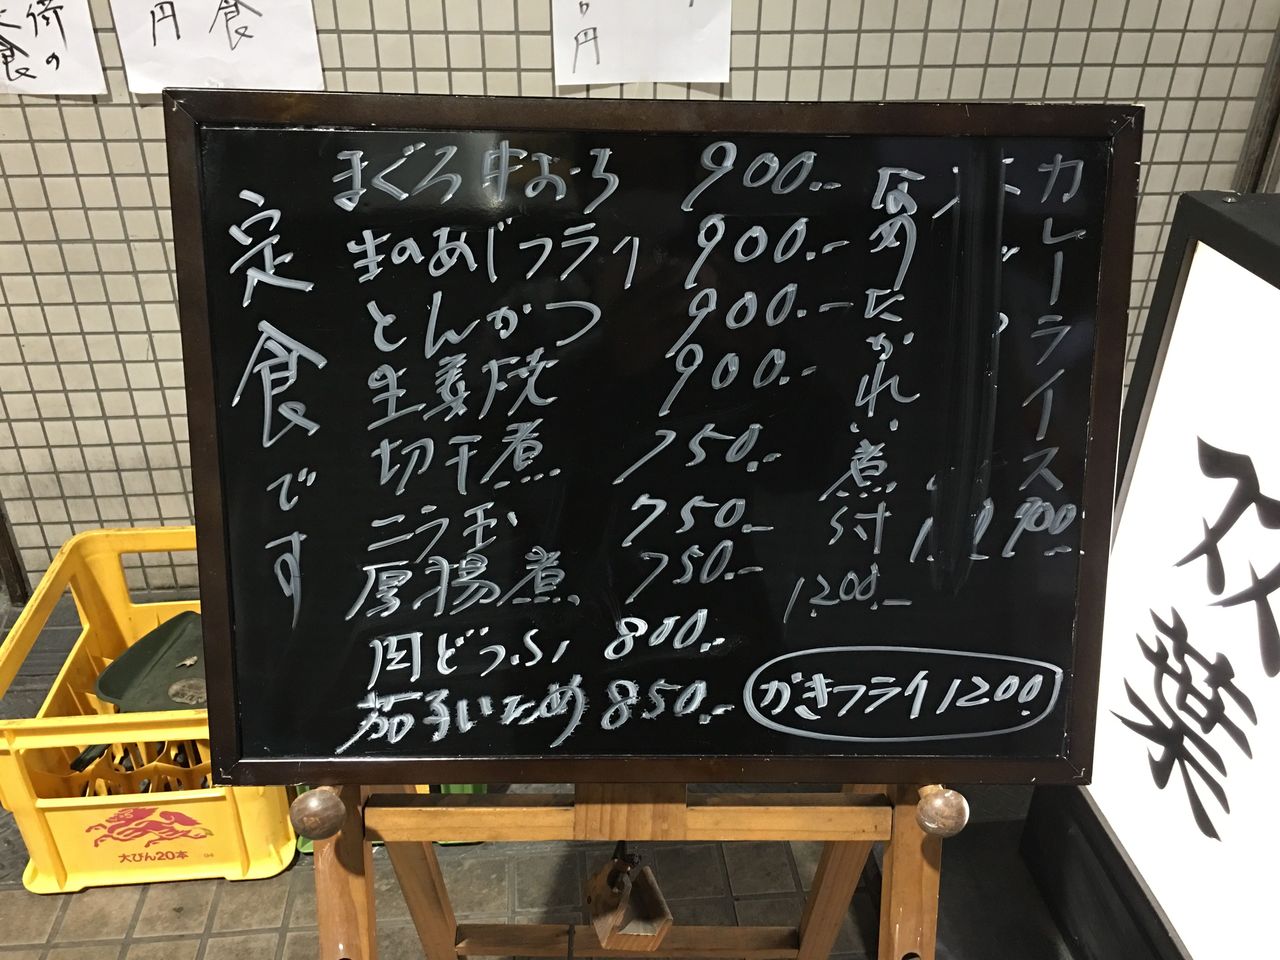 定食です
まぐろ中おち 900.-
生のあじフライ 900.-
とんかつ 900.-
生姜焼 900.-
切干煮 750.-
ニラ玉 750.-
厚揚煮 750.-
肉どうふ 800.-
茄子いため 850.-
カレーライス 900.-
なめたかれい煮付 1200.-
かきフライ 1200
食
円
円
食の
大びん20本
双葉